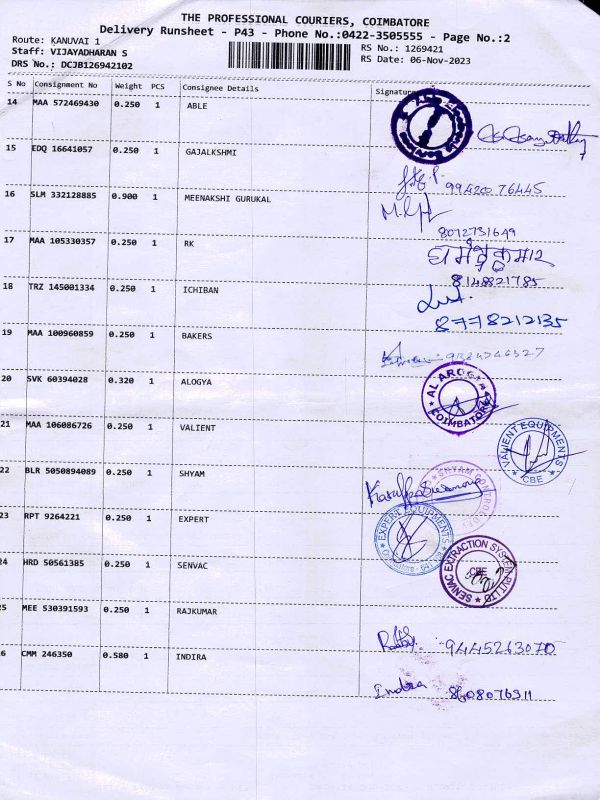 THE PROFESSIONAL COURIERS, COIMBATORE
Delivery Runsheet - P43 - Phone No.:0422-3505555 - Page No.:2
Route: KANUVAI 1
Staff: VIJAYADHARAN S
DRS No.: DCJB126942102
RS No.: 1269421
RS Date: 06-Nov-2023
S No Consignment No Weight PCS Consignee Details Signature
14 MAA 572469430 0.250 1 ABLE
15 EDQ 16641057 0.250 1 GAJALKSHMI
99420076445
16 SLM 332128885 0.900 1 MEENAKSHI GURUKAL
8072731649
17 MAA 105330357 0.250 1 RK
8148821785
18 TRZ 145001334 0.250 1 ICHIBAN
8778212135
19 MAA 100960859 0.250 1 BAKERS
20 SVK 60394028 0.320 1 ALOGYA
COIMBATORE
21 MAA 106086726 0.250 1 VALIENT
VALIENT EQUIPMENTS
CBE
22 BLR 5050894089 0.250 1 SHYAM
SHYAM
23 RPT 9264221 0.250 1 EXPERT
EXPERT EQUIPMENTS
24 HRD 50561385 0.250 1 SENVAC
SENVAC EXTRACTION SYSTEM PVT LTD
CBE
25 MEE 530391593 0.250 1 RAJKUMAR
9445263070
26 CMM 246350 0.580 1 INDIRA
Indra 8608076311